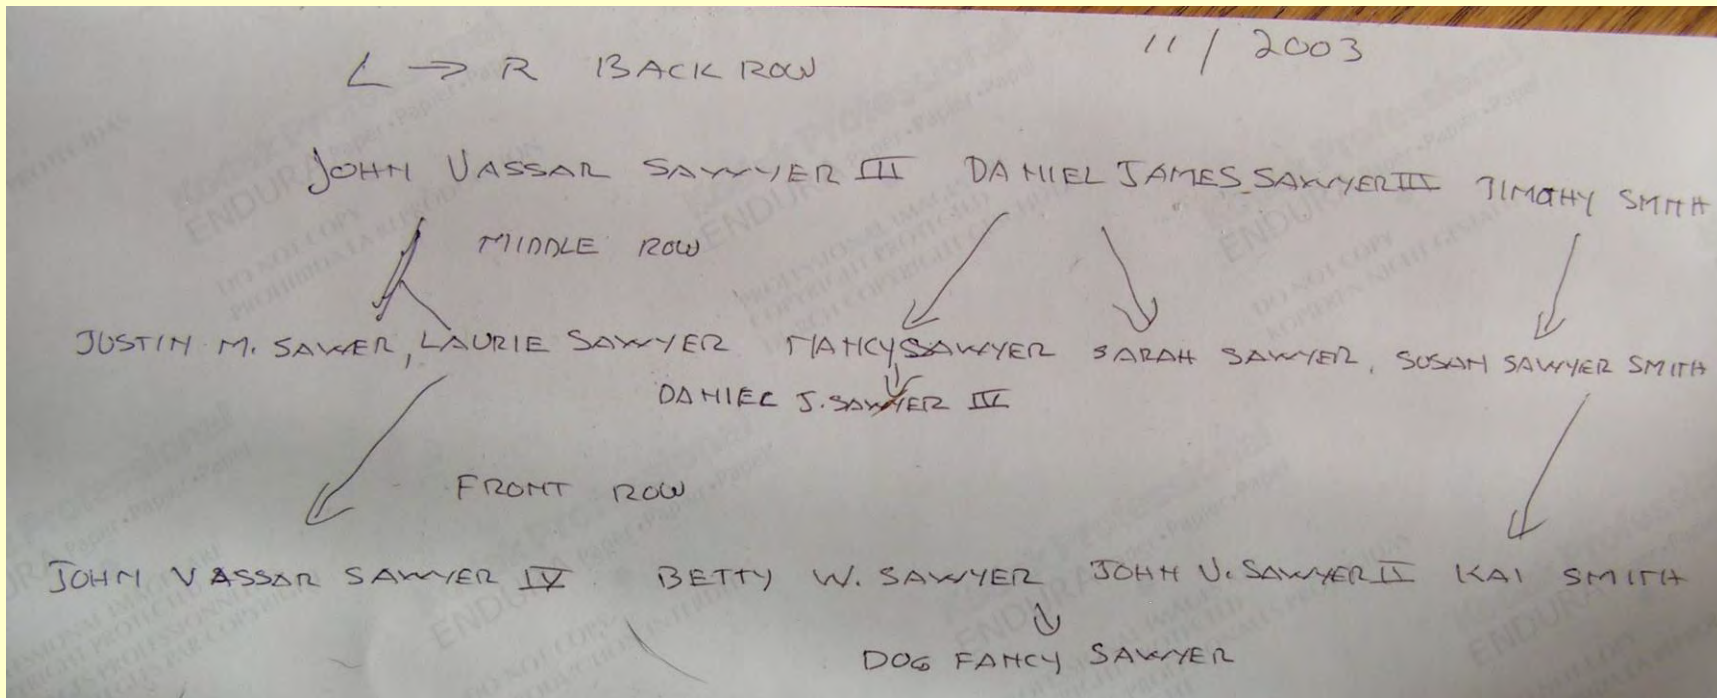 L → R BACK ROW 11/2003
JOHN VASSAR SAWYER III DANIEL JAMES SAWYER III TIMOTHY SMITH
MIDDLE ROW
JUSTIN M. SAWER, LAURIE SAWYER NANCY SAWYER SARAH SAWYER, SUSAN SAWYER SMITH
DANIEL J. SAWYER IV
FRONT ROW
JOHN VASSAR SAWYER IV BETTY W. SAWYER JOHN V. SAWYER II KAI SMITH
DOG FANCY SAWYER